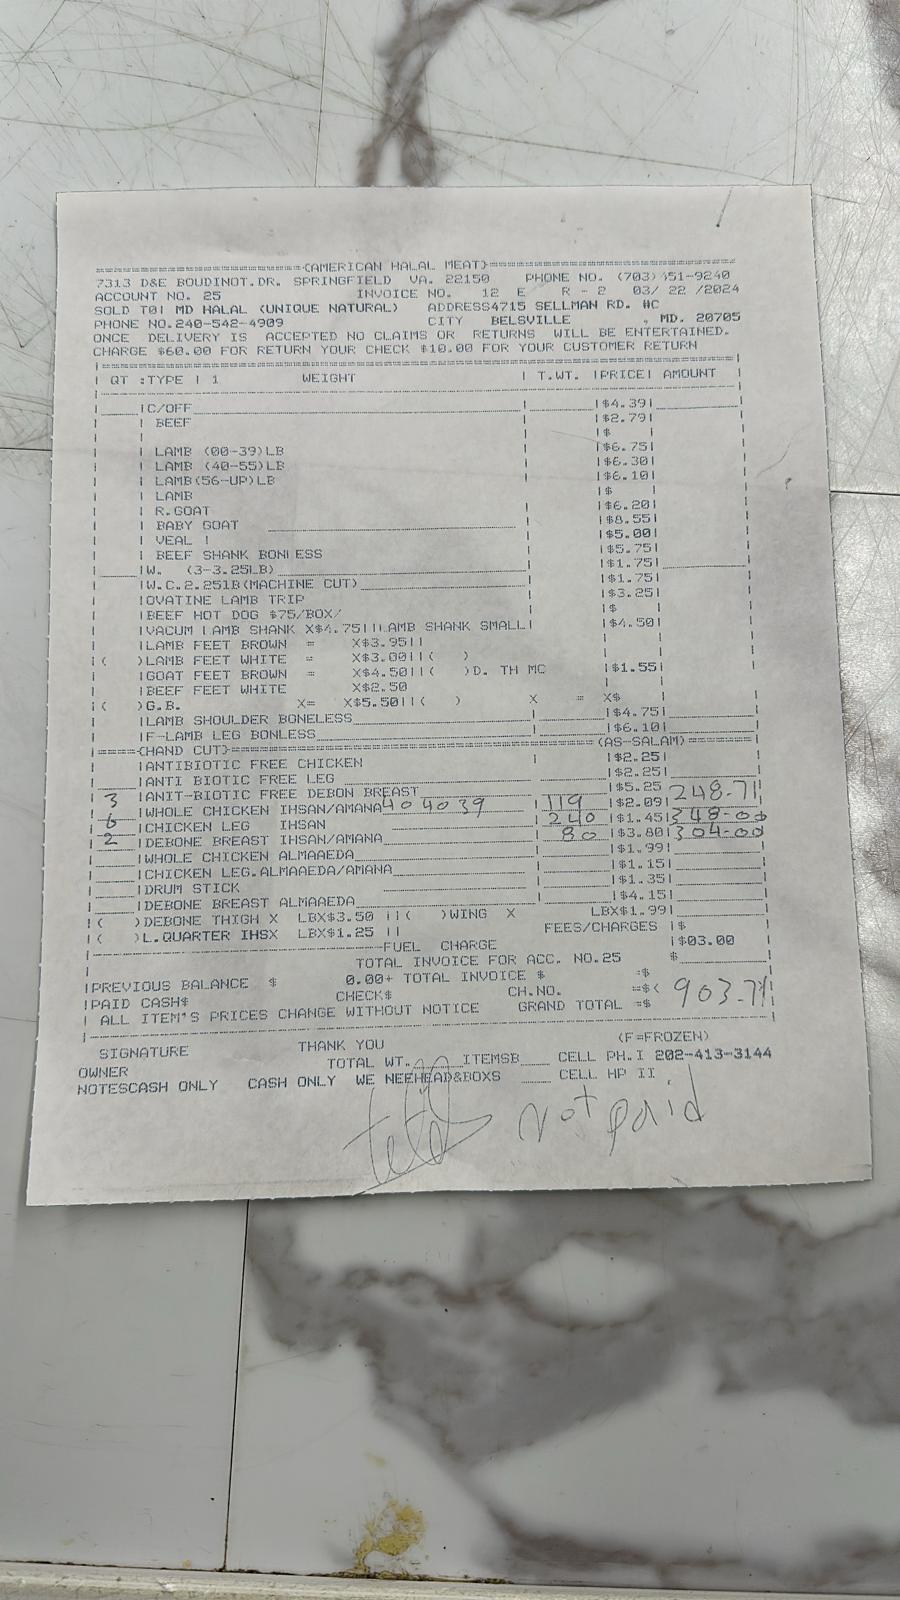 (AMERICAN HALAL MEAT)
7313 D&E BOUDINOT.DR. SPRINGFIELD VA. 22150 PHONE NO. (703) 451-9240
ACCOUNT NO. 25 INVOICE NO. 12 E R - 2 03/ 22 /2024
SOLD TO| MD HALAL (UNIQUE NATURAL) ADDRESS4715 SELLMAN RD. #C
PHONE NO.240-542-4909 CITY BELSVILLE , MD. 20705
ONCE DELIVERY IS ACCEPTED NO CLAIMS OR RETURNS WILL BE ENTERTAINED.
CHARGE $60.00 FOR RETURN YOUR CHECK $10.00 FOR YOUR CUSTOMER RETURN
| QT :TYPE | 1 WEIGHT | T.WT. |PRICE| AMOUNT |
|C/OFF |$4.39|
| BEEF |$2.79|
| |$ |
| LAMB (00-39)LB |$6.75|
| LAMB (40-55)LB |$6.30|
| LAMB(56-UP)LB |$6.10|
| LAMB |$ |
| R.GOAT |$6.20|
| BABY GOAT |$8.55|
| VEAL | |$5.00|
| BEEF SHANK BONLESS |$5.75|
|W. (3-3.25LB) |$1.75|
|W.C.2.25LB(MACHINE CUT) |$1.75|
|OVATINE LAMB TRIP |$3.25|
|BEEF HOT DOG $75/BOX/ |$ |
|VACUM LAMB SHANK X$4.75||LAMB SHANK SMALL| |$4.50|
|LAMB FEET BROWN = X$3.95||
|( )LAMB FEET WHITE = X$3.00||( )
|GOAT FEET BROWN = X$4.50||( )D. TH MC |$1.55|
|BEEF FEET WHITE X$2.50
|( )G.B. X= X$5.50||( ) X = X$
|LAMB SHOULDER BONELESS |$4.75|
|F-LAMB LEG BONLESS |$6.10|
(HAND CUT) (AS-SALAM)
|ANTIBIOTIC FREE CHICKEN |$2.25|
|ANTI BIOTIC FREE LEG |$2.25|
|ANIT-BIOTIC FREE DEBON BREAST |$5.25
3 |WHOLE CHICKEN IHSAN/AMANA 40 40 39 | 119 |$2.09| 248.71
6 |CHICKEN LEG IHSAN | 240 |$1.45| 348-00
2 |DEBONE BREAST IHSAN/AMANA | 80 |$3.80| 304-00
|WHOLE CHICKEN ALMAAEDA |$1.99|
|CHICKEN LEG.ALMAAEDA/AMANA |$1.15|
|DRUM STICK |$1.35|
|DEBONE BREAST ALMAAEDA |$4.15|
|( )DEBONE THIGH X LBX$3.50 ||( )WING X LBX$1.99|
|( )L.QUARTER IHSX LBX$1.25 || FEES/CHARGES |$
FUEL CHARGE |$03.00
TOTAL INVOICE FOR ACC. NO.25 $
|PREVIOUS BALANCE $ 0.00+ TOTAL INVOICE $ =$
|PAID CASH$ CHECK$ CH.NO. =$<
| ALL ITEM'S PRICES CHANGE WITHOUT NOTICE GRAND TOTAL =$ 903.71
SIGNATURE THANK YOU (F=FROZEN)
OWNER TOTAL WT. ITEMSB CELL PH.I 202-413-3144
NOTESCASH ONLY CASH ONLY WE NEEHEAD&BOXS CELL HP II
not paid